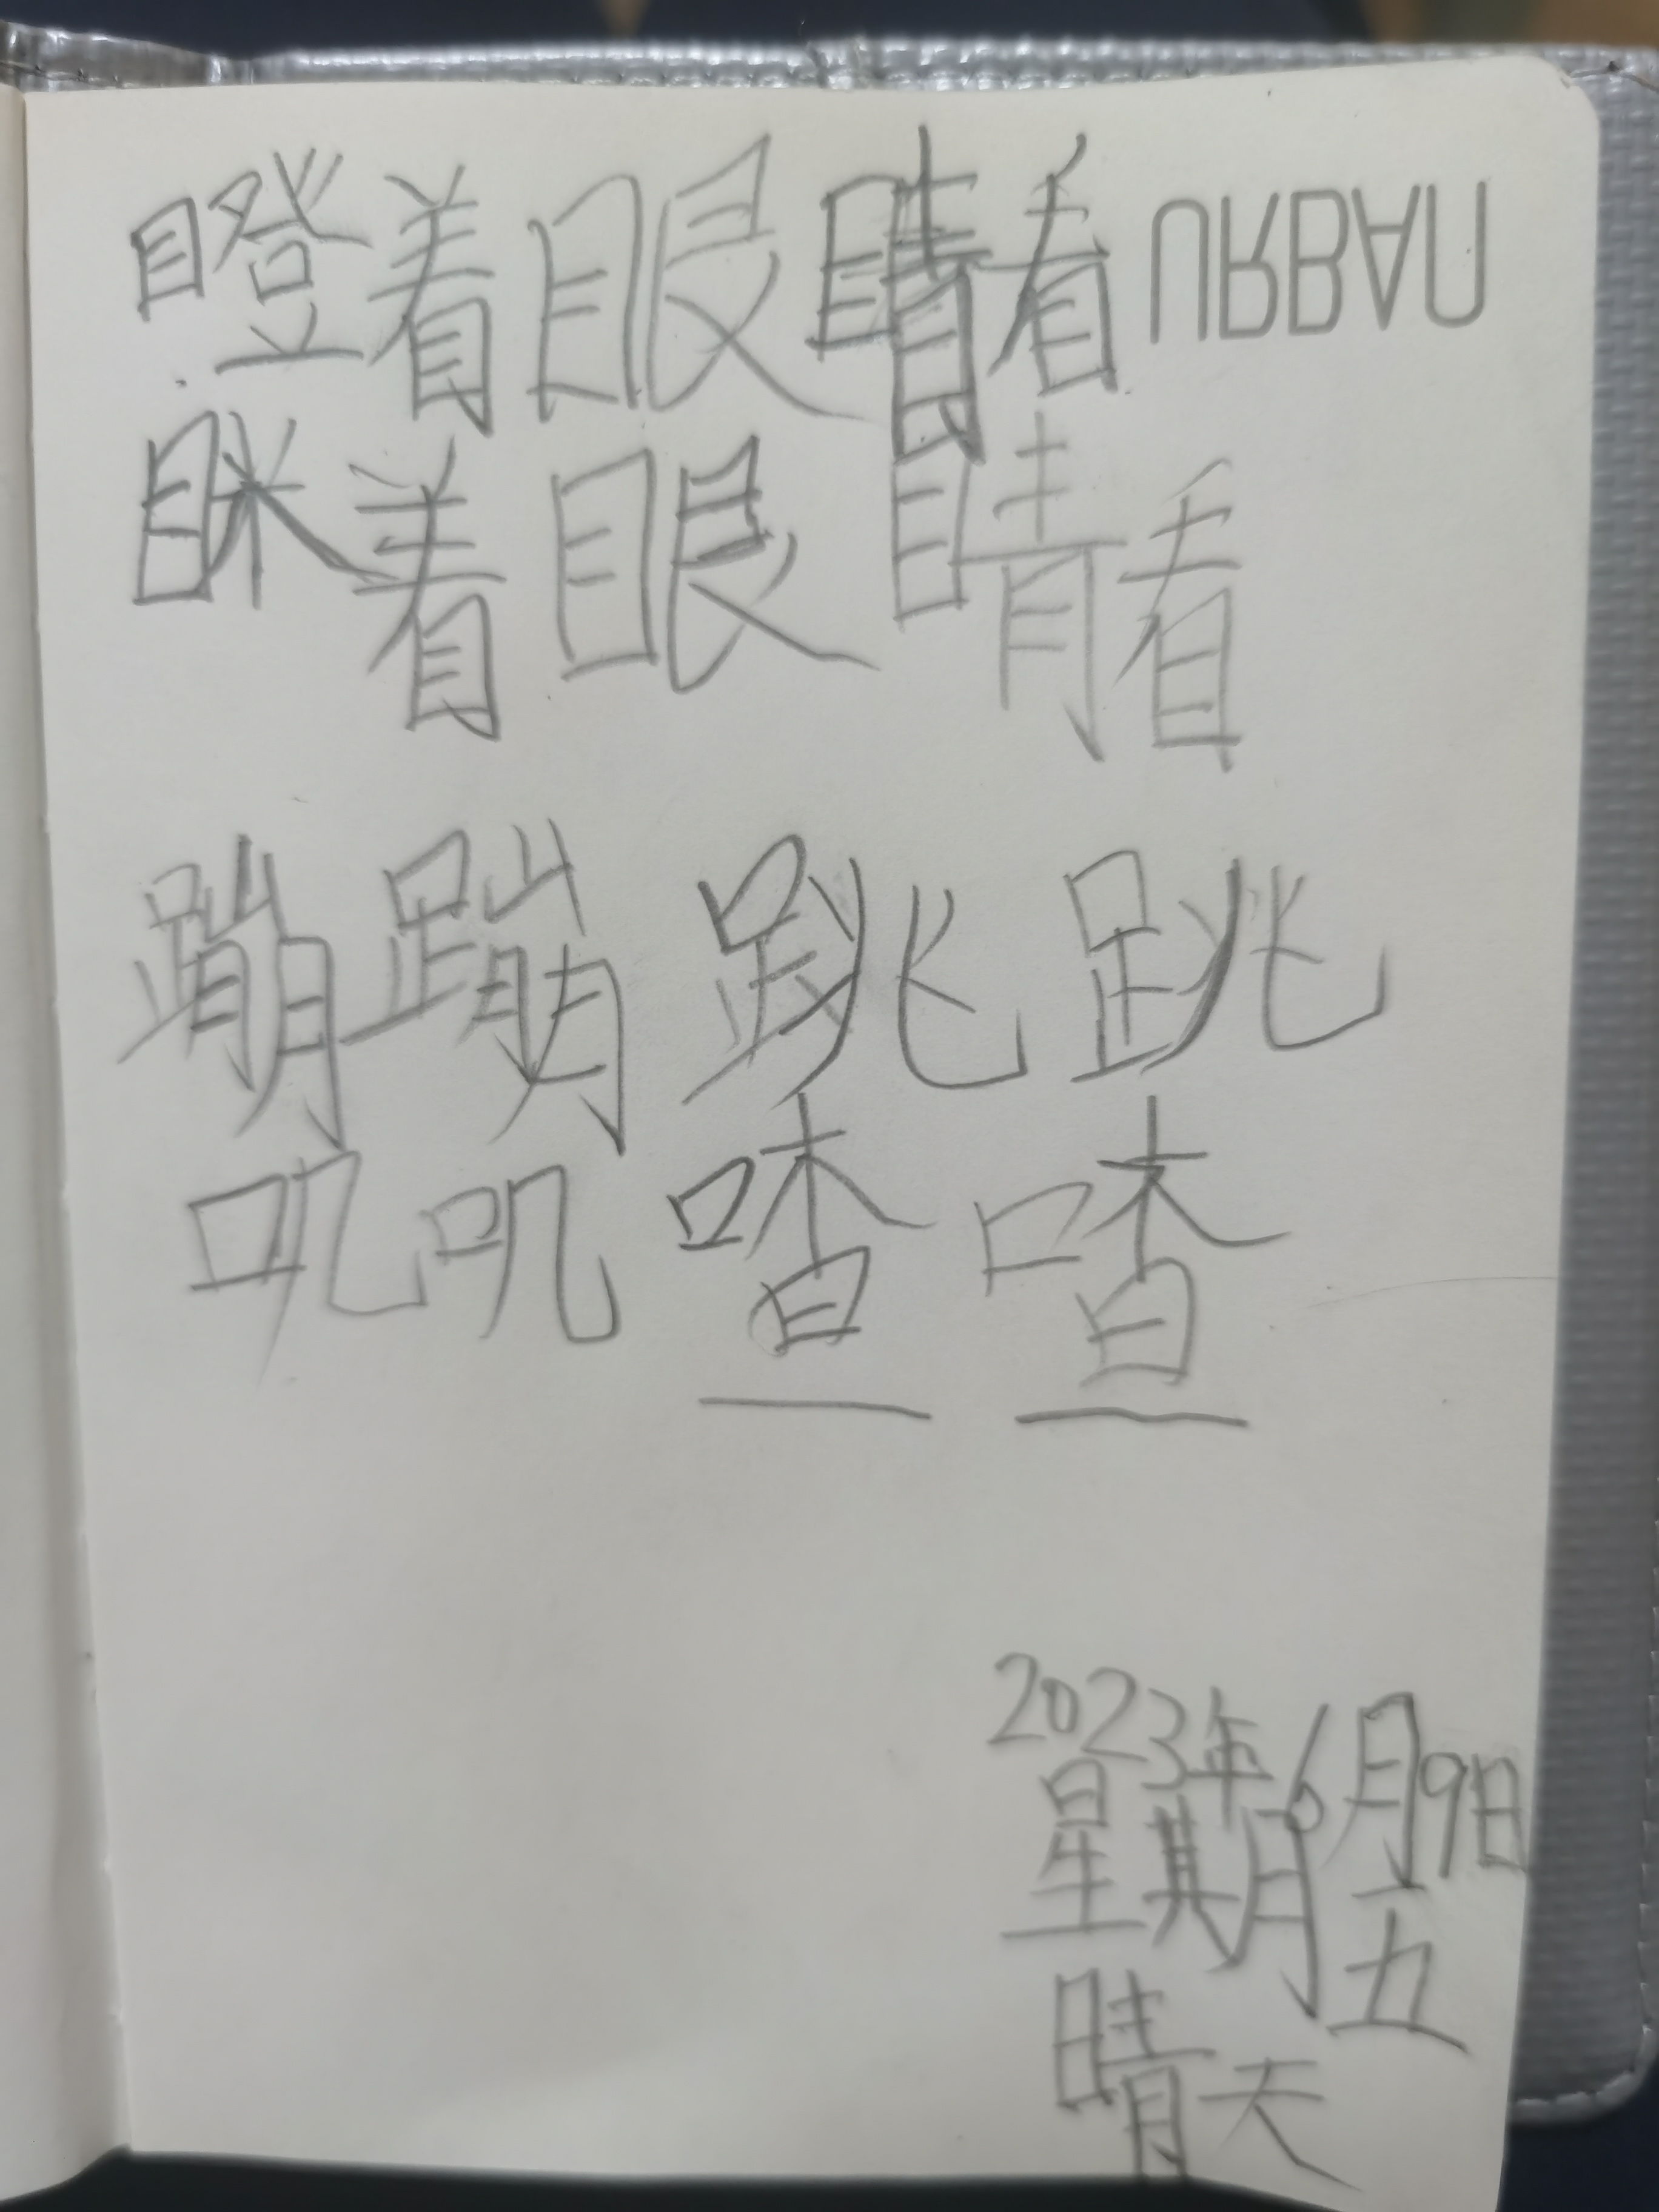 瞪着眼睛看 URBAN
眯着眼睛看
蹦蹦跳跳
叽叽喳喳
2023年6月9日
星期五
晴天